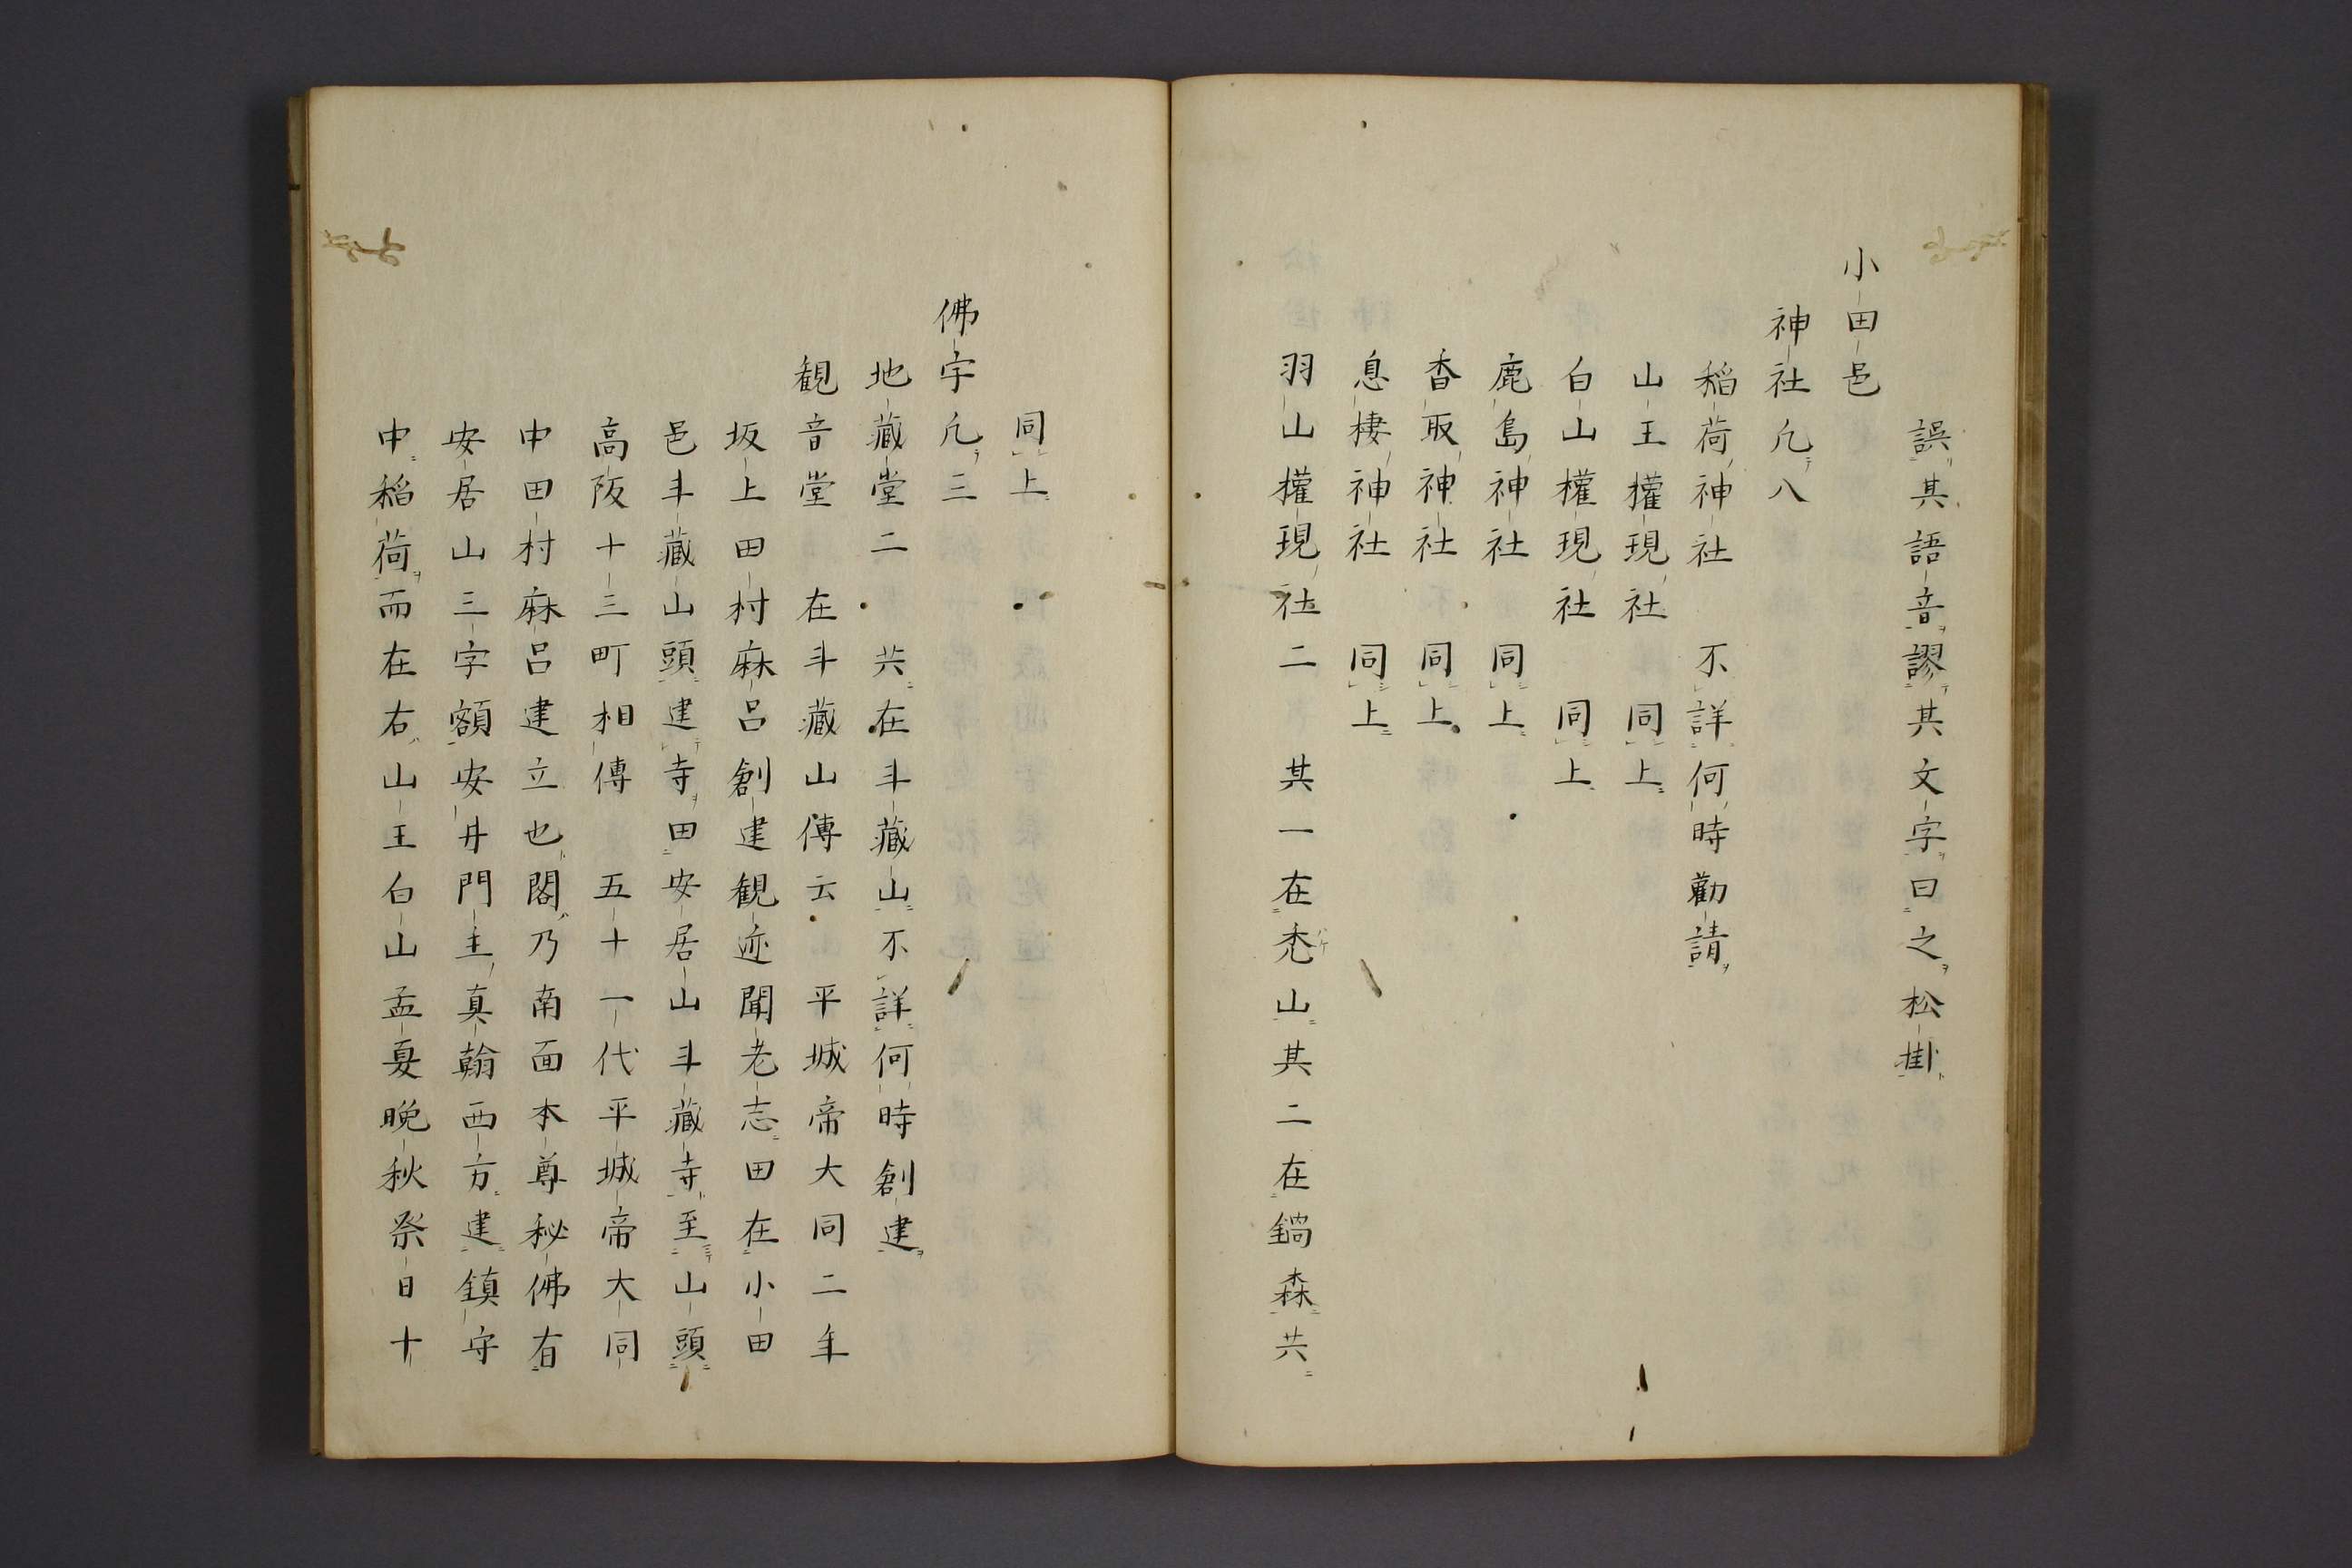 誤其語音謬其文字曰之松掛
小田邑
神社凢八
稲荷神社 不詳何時勸請
山王權現社 同上
白山權現社 同上
鹿島神社 同上
香取神社 同上
息棲神社 同上
羽山權現社二 其一在禿山其二在鍋森共
同上
佛宇凢三
地藏堂二 共在斗藏山不詳何時創建
観音堂 在斗藏山傳云 平城帝大同二年
坂上田村麻呂創建観迹聞老志田在小田
邑斗藏山頭建寺田安居山斗藏寺至山頭
高阪十三町相傳 五十一代平城帝大同
中田村麻呂建立也閣乃南面本尊秘佛有
安居山三字額安井門主真翰西方建鎮守
中稲荷而在右山王白山孟夏晩秋祭日十